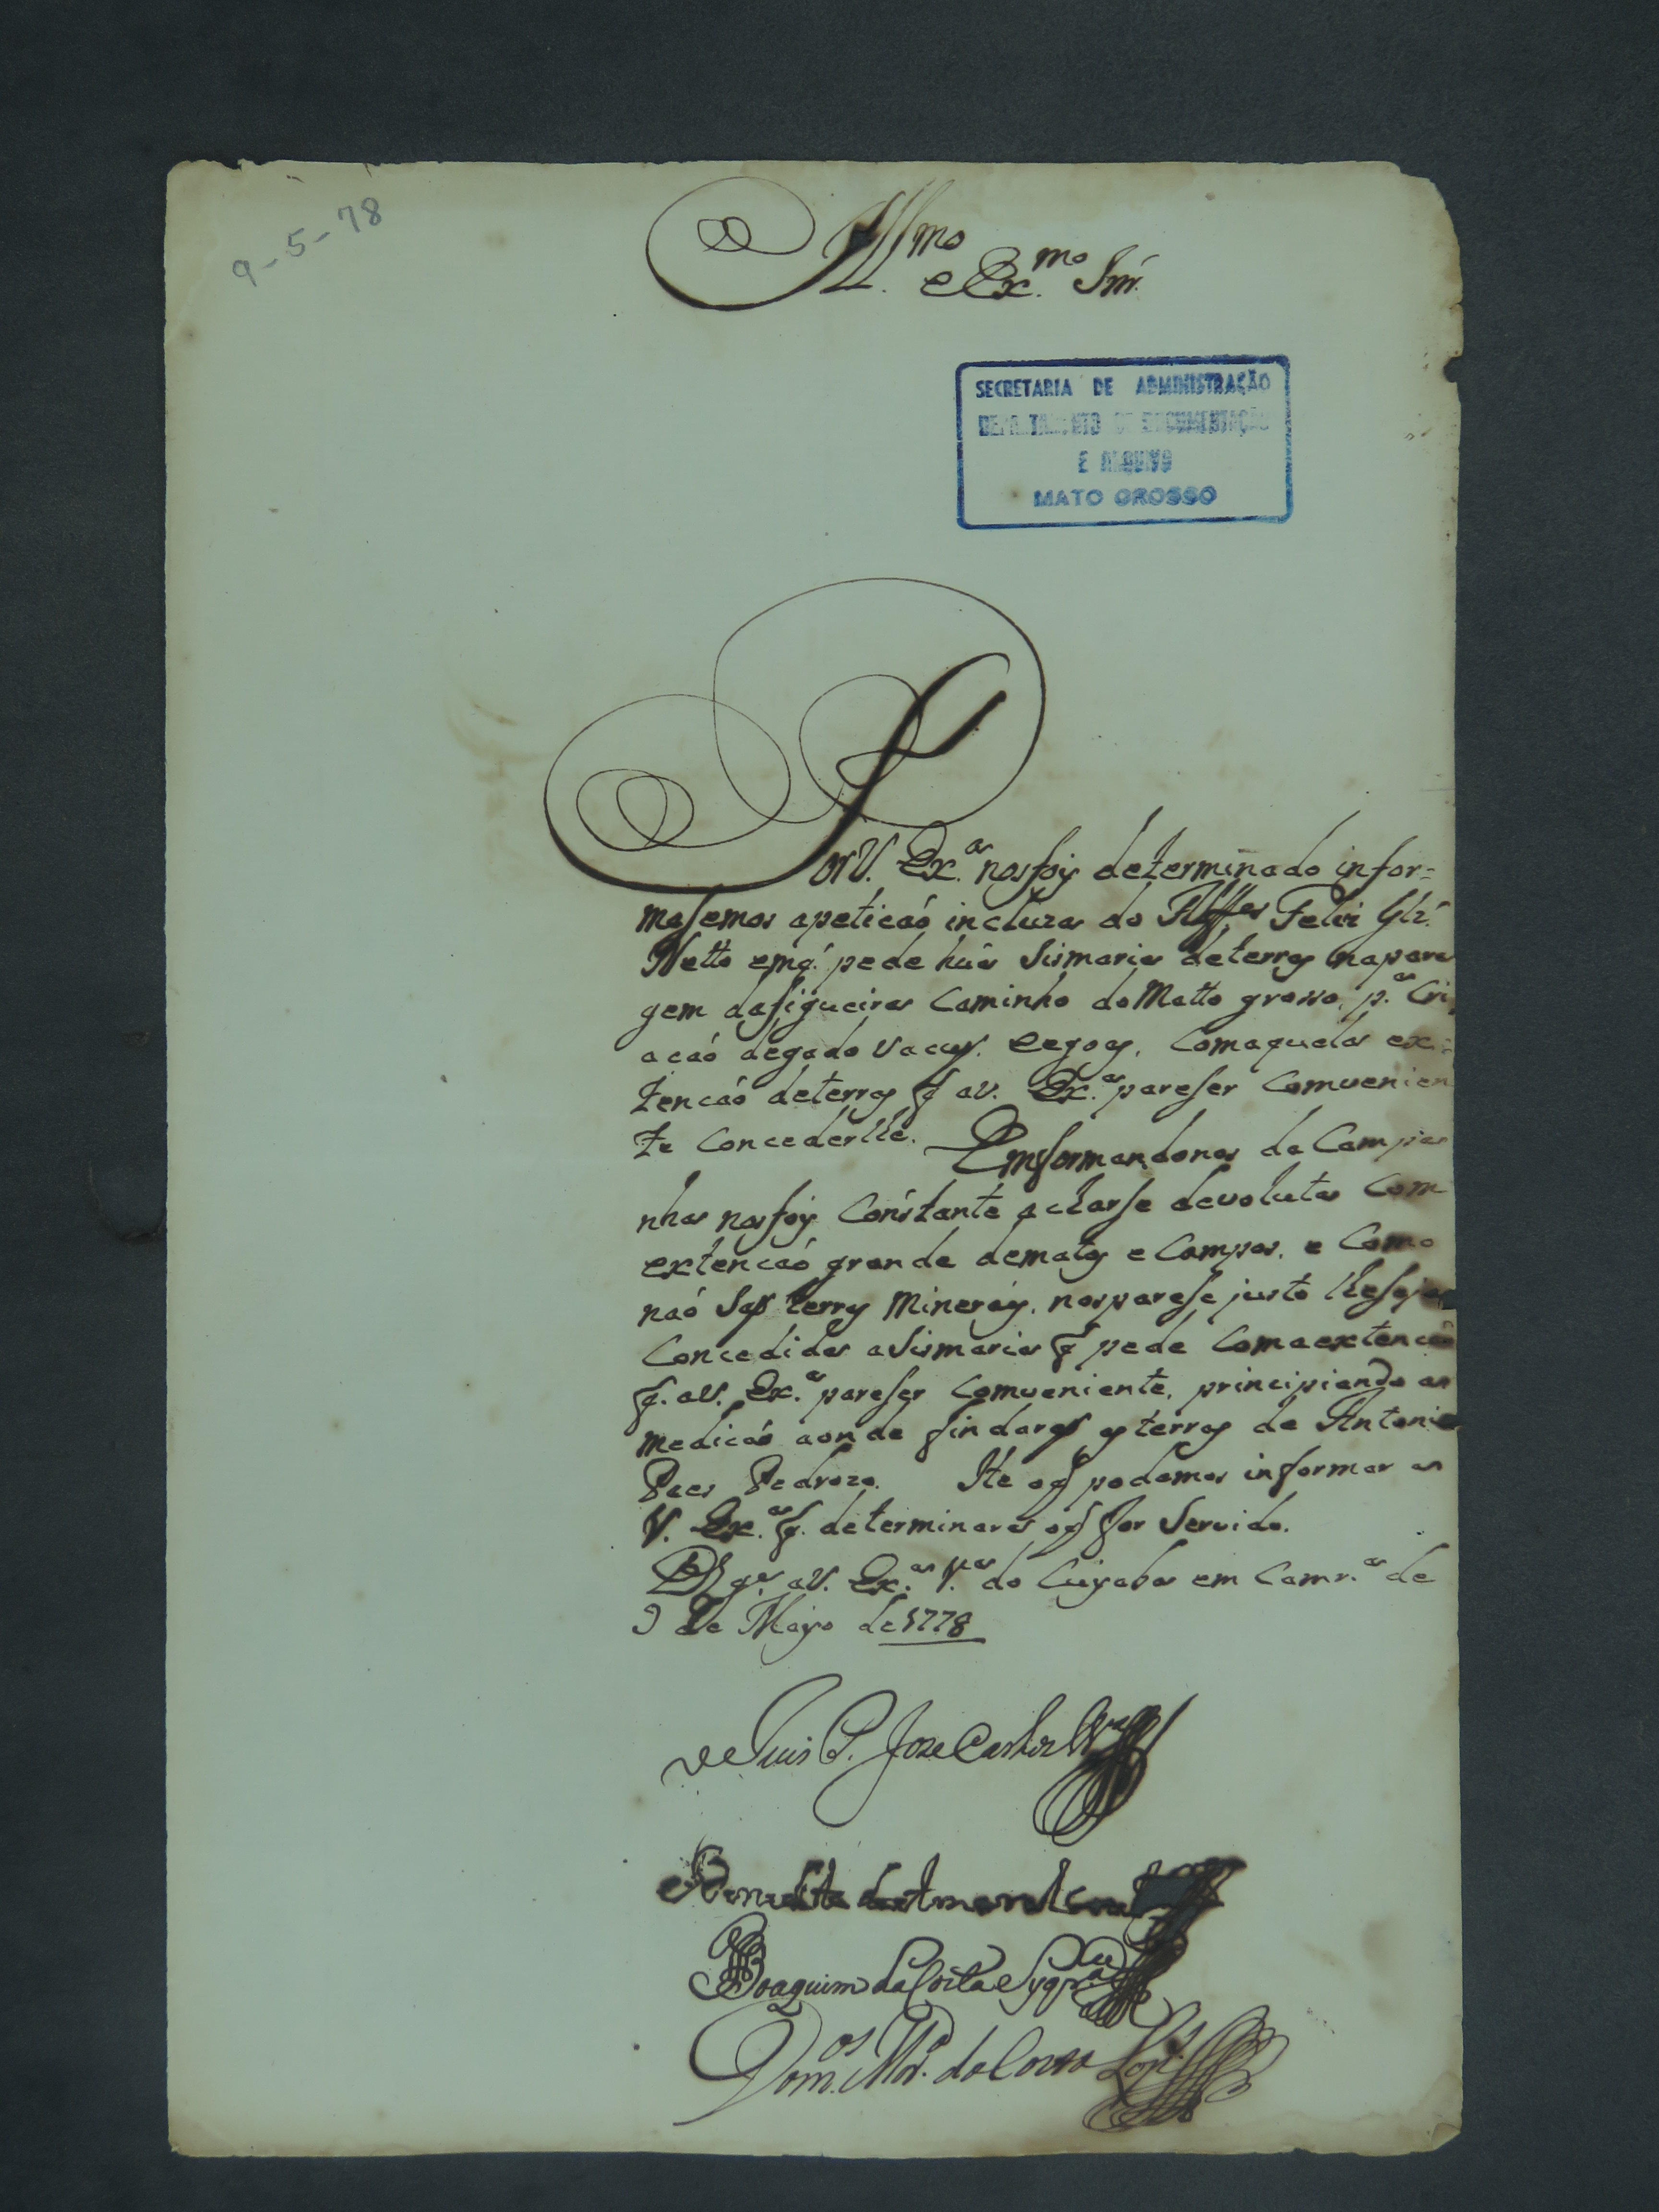 9-5-78
Ill.mo e Ex.mo Snr.
SECRETARIA DE ADMINISTRAÇÃO
DEPARTAMENTO DE DOCUMENTAÇÃO
E ARQUIVO
MATO GROSSO
Por V. Ex.a nos foy determinado infor=
masemos apeticaó incluza do Alfes Felix Glz.
Netto emq. pede húa Sismaria deterras napara
gem dafigueira Caminho do Matto grosso, p.a Cri
acaó degado Vacuy. eegoas, Comaquela ex=
tencaó deterras q av. Ex.a pareser Comuenien
te Concederlle. Emformandonos da Campa
nha nosfoy Constante acharse devoluta Com
extencaó grande dematos e Campos, e Como
naó Saó terras Mineráy, nosparese justo lheseja
Concedida aSismaria q pede Comaextencaó
q. aV. Ex.a pareser Comueniente, principiando a
medicaó aonde findarem as terras de Antonio
Paes Pedrozo. He oq podemos informar a
V. Ex.a q. determinara oq for Servido.
Ds g.e aV. Ex.a V.a do Cuyaba em Camr.a de
9 de Mayo de 1778
Luis P. Joze
Benedito do Amaral
Joaquim da Costa Syqr.a
Dom.os